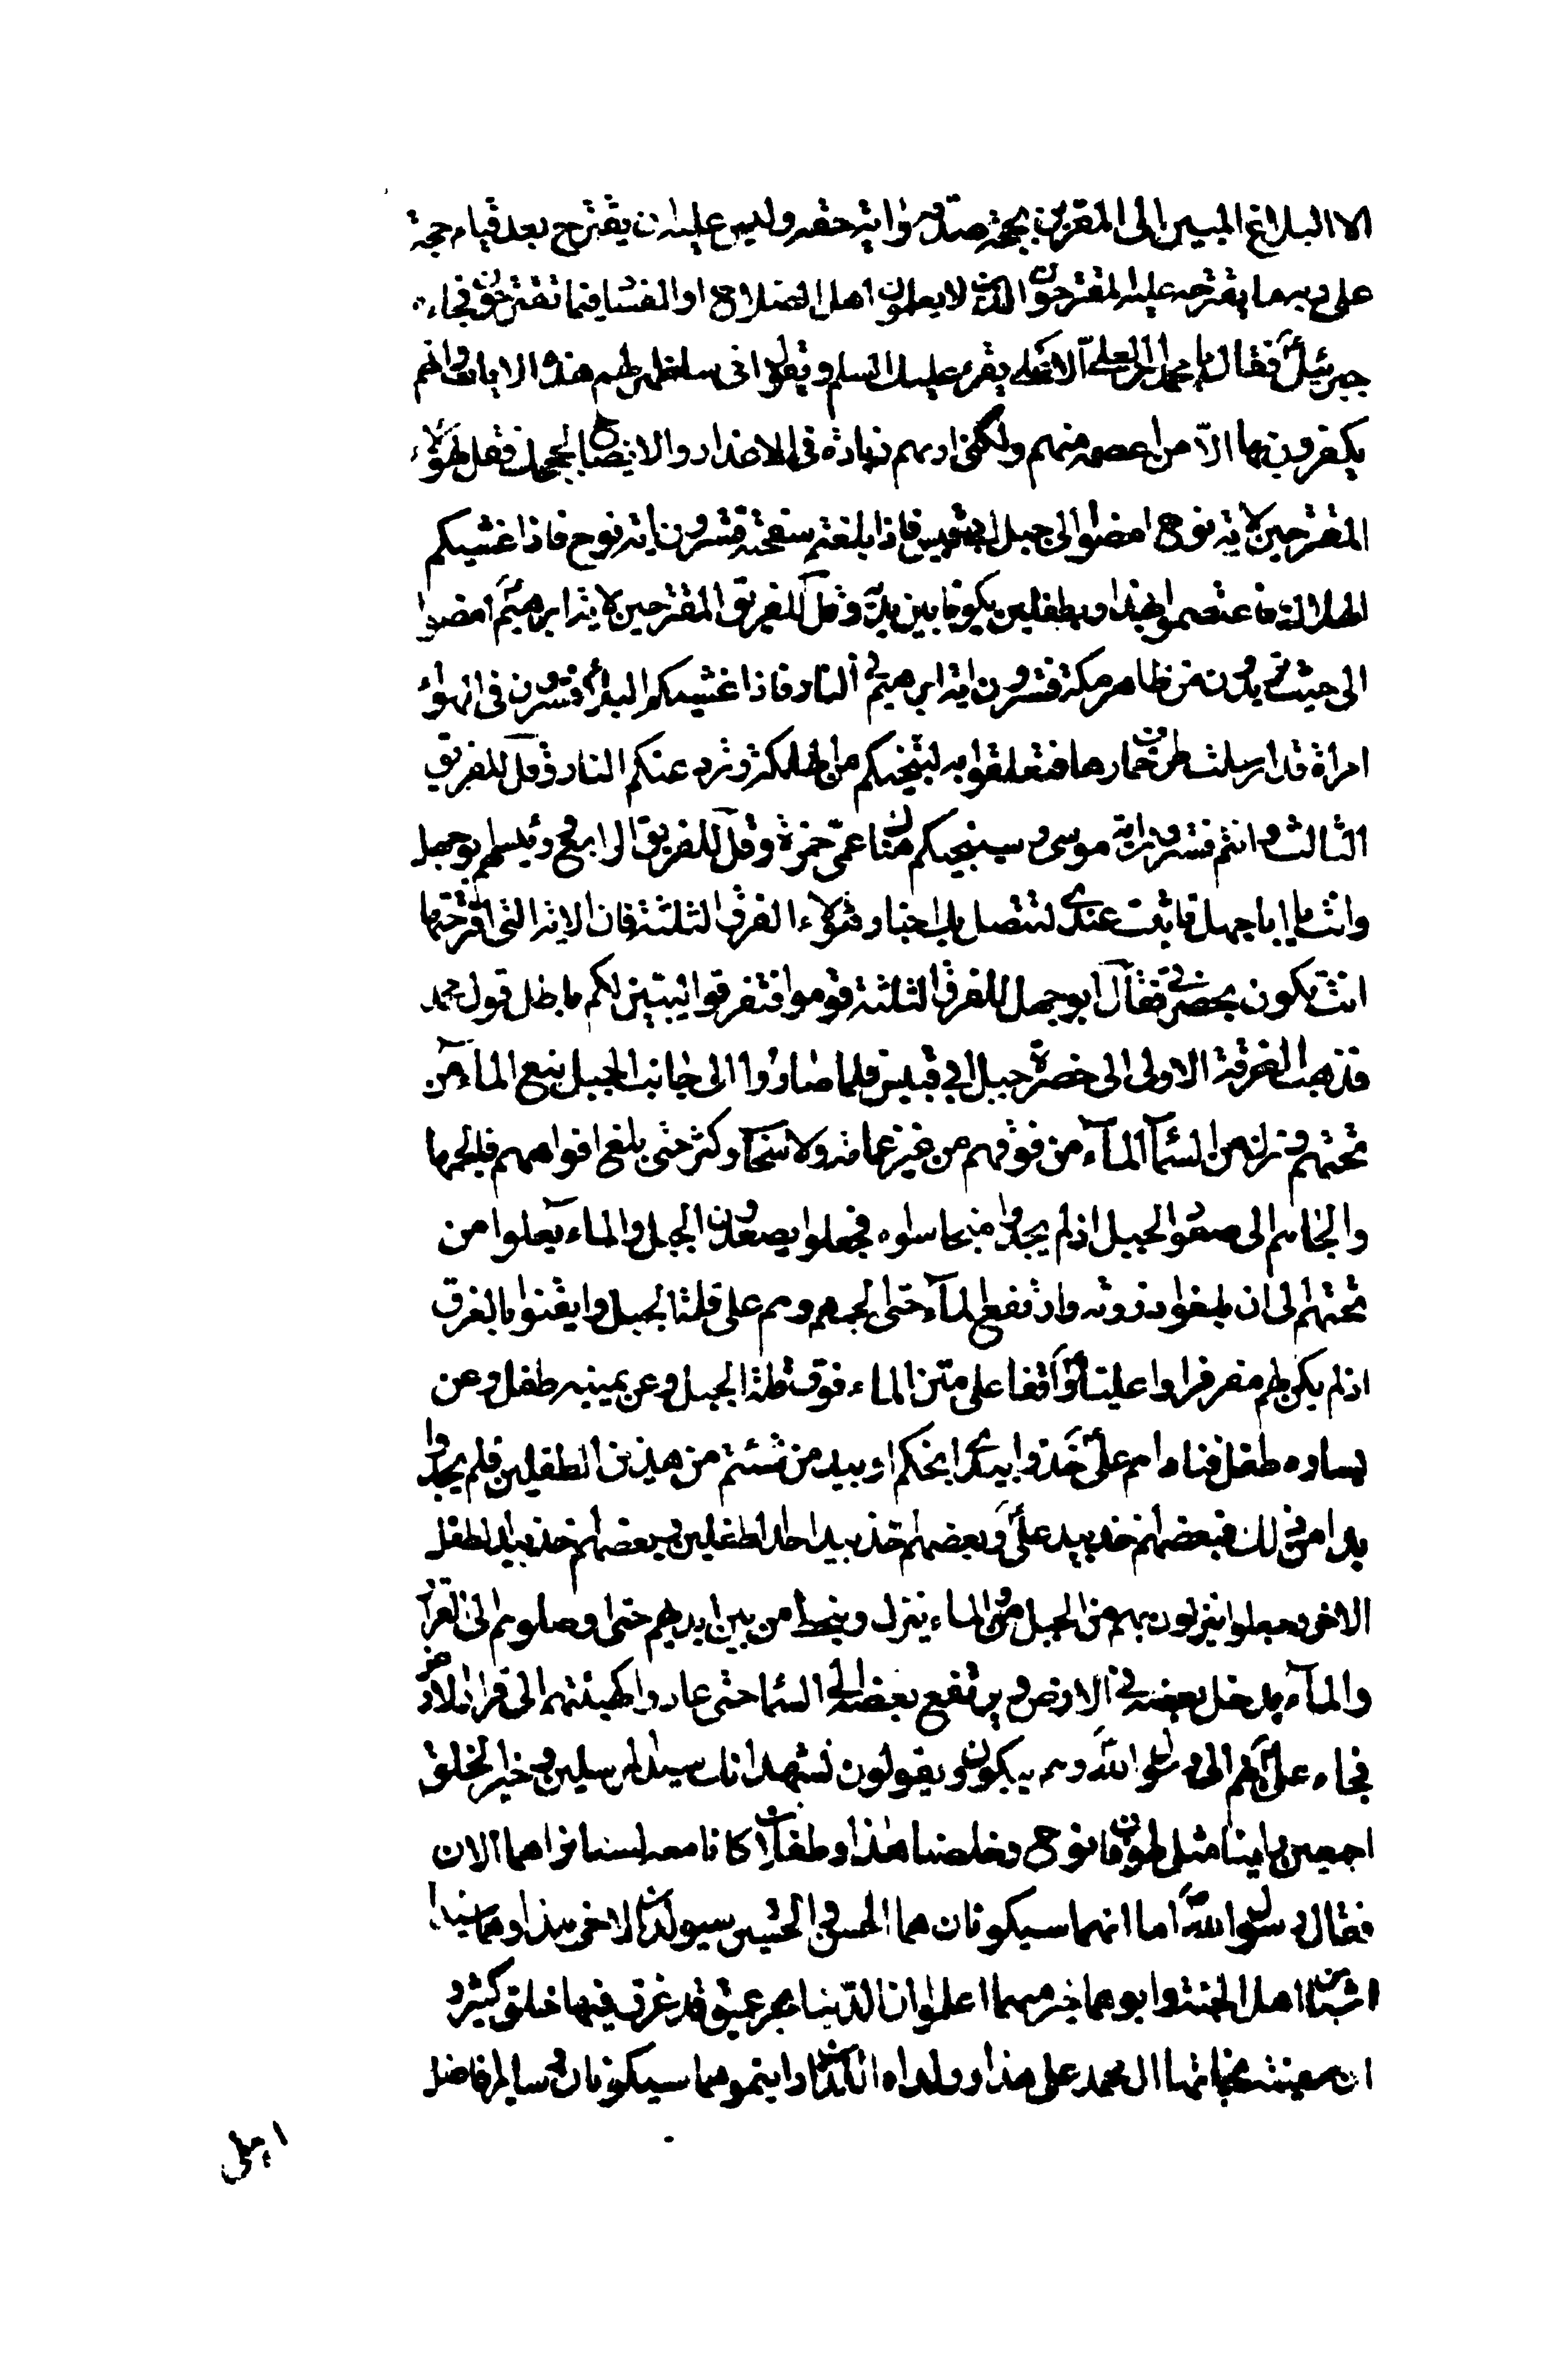 الا البلاغ المبين الى المقربين بحجة صدقه واية حقه وليس عليه ان يقترح بعد قيام حجة
على ربه ما يقترحه عليه المقترحون الذين لا يعلمون اهل الصلاح او الفساد فيما تقترحون فجاءه
جبرئيل فقال يا محمد ان العلي الاعلى يقرء عليك السلم ويقول انى ساظهر لهم هذه الايات وانهم
يكفرون بها الا من اعصمه منهم ولكنى اريهم زيادة في الاعذار والايضاح لحججك فقل لهؤلاء
المقترحين لاية نوح امضوا الى جبل ابي قبيس فاذا بلغتم سفحه فسترون اية نوح فاذا غشيكم
الهلاك فاعتصموا بهذا وبطفلين يكونا بين يديه وقل للفريق المقترحين لاية ابرهيم امضوا
الى حيث تريدون من ظاهر مكة فسترون اية ابرهيم في النار فاذا غشيكم البلاء فسترون في الهواء
امراة قد ارسلت طرف خمارها فتعلقوا به لتنجيكم من الهلكة وترد عنكم النار وقل للفريق
الثالث وانتم فسترون اية موسى وسينجيكم هناك عمى حمزة وقل للفريق الرابع ورئيسهم ابو جهل
وانت يا ابا جهل فاثبت عندى لتتصل بك اخبار هؤلاء الفرق الثلثة فان الاية التى اقترحتها
انت تكون بحضرتي فقال ابو جهل للفرق الثلثة قوموا فتفرقوا ليتبين لكم باطل قول محمد
فذهبت الفرقة الاولى الى حضرة جبل ابي قبيس فلما صاروا الى جانب الجبل نبع الماء من
تحتهم ونزل من السماء الماء من فوقهم من غير غمامة ولا سحاب وكثر حتى بلغ افواههم فالجمها
والجاهم الى صعود الجبل اذ لم يجدوا منجا سواه فجعلوا يصعدون الجبل والماء يعلوا من
تحتهم الى ان بلغوا ذروته وارتفع الماء حتى الجمهم وهم على قلة الجبل وايقنوا بالغرق
اذ لم يكن لهم مفر فراوا عليا واقفا على متن الماء فوق قلة الجبل وعن يمينه طفل وعن
يساره طفل فناداهم على خذوا بيدى انجكم او بيد من شئتم من هذين الطفلين فلم يجدوا
بدا من ذلك فبعضهم اخذ بيد على وبعضهم اخذ بيد احد الطفلين وبعضهم اخذ بيد الطفل
الاخر وجعلوا ينزلون بهم من الجبل والماء ينزل وينحط من بين ايديهم حتى اوصلوهم الى القرار
والماء يدخل بعضه في الارض ويرتفع بعضه الى السماء حتى عادوا كهيئتهم الى قرار الارض
فجاء على بهم الى رسول الله وهم يبكون ويقولون نشهد انك سيد المرسلين وخير الخلق
اجمعين راينا مثل طوفان نوح وخلصنا هذا وطفلان كانا معه لسنا نراهما الان
فقال رسول الله اما انهما سيكونان هما الحسن والحسين سيولدان لاخى هذا وهما سيدا
شباب اهل الجنة وابوهما خير منهما اعلموا ان الدنيا بحر عميق قد غرق فيها خلق كثير و
ان سفينة نجاتها ال محمد على هذا وولداه اللذان رايتموهما سيكونان وساير افاضل
اهلى